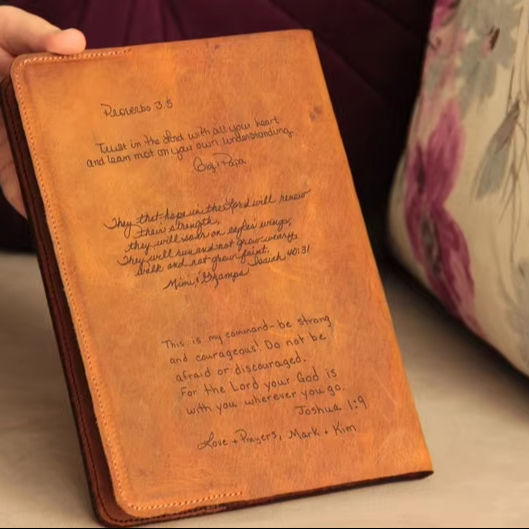 Proverbs 3:5
Trust in the Lord with all your heart
and lean not on your own understanding.
Gigi + Papa
They that hope in the Lord will renew
their strength,
they will soar on eagles wings;
They will run and not grow weary,
walk and not grow faint.
Isaiah 40:31
Mimi & Gramps
This is my command- be strong
and courageous! Do not be
afraid or discouraged.
For the Lord your God is
with you wherever you go.
Joshua 1:9
Love + Prayers, Mark + Kim